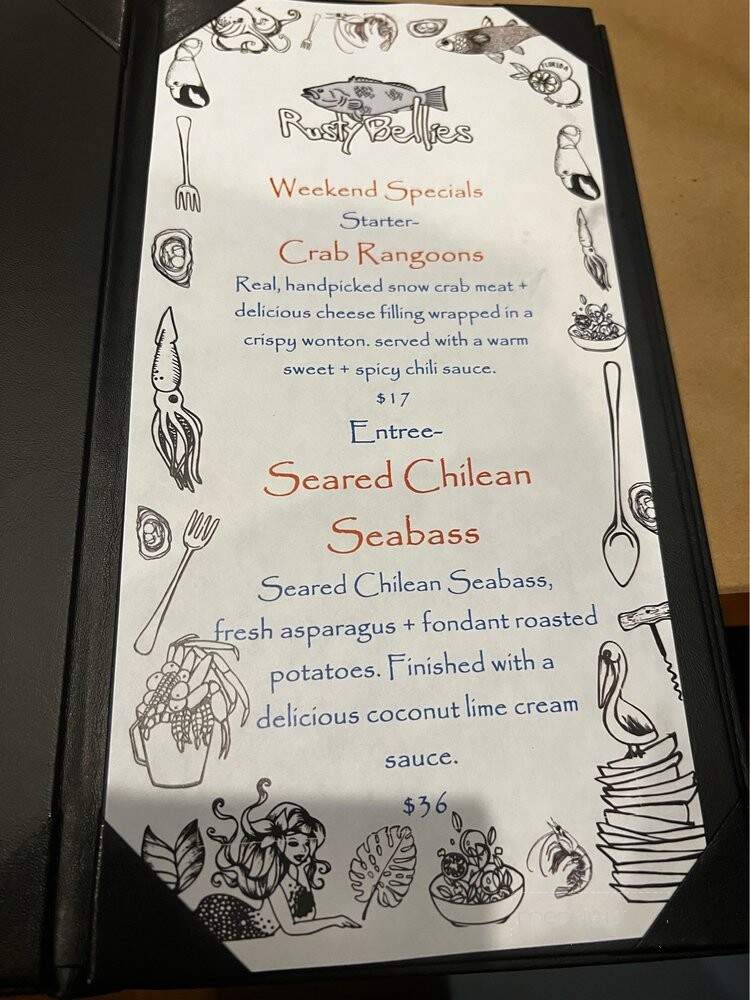 FLORIDA
Rusty Bellies
Weekend Specials
Starter-
Crab Rangoons
Real, handpicked snow crab meat +
delicious cheese filling wrapped in a
crispy wonton. served with a warm
sweet + spicy chili sauce.
$17
Entree-
Seared Chilean
Seabass
Seared Chilean Seabass,
fresh asparagus + fondant roasted
potatoes. Finished with a
delicious coconut lime cream
sauce.
$36